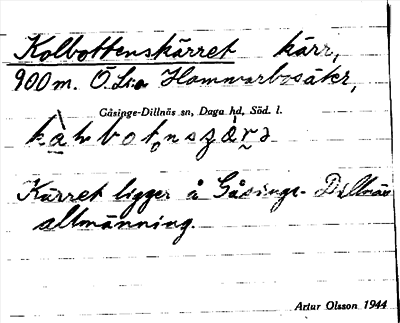 Kolbottenskärret kärr,
900 m. Ö. Lia Hammarbosäkr,
Gåsinge-Dillnäs sn, Daga hd, Söd. l.
Kärret ligger å Gåsinge-Dillnäs
allmänning.
Artur Olsson 1944